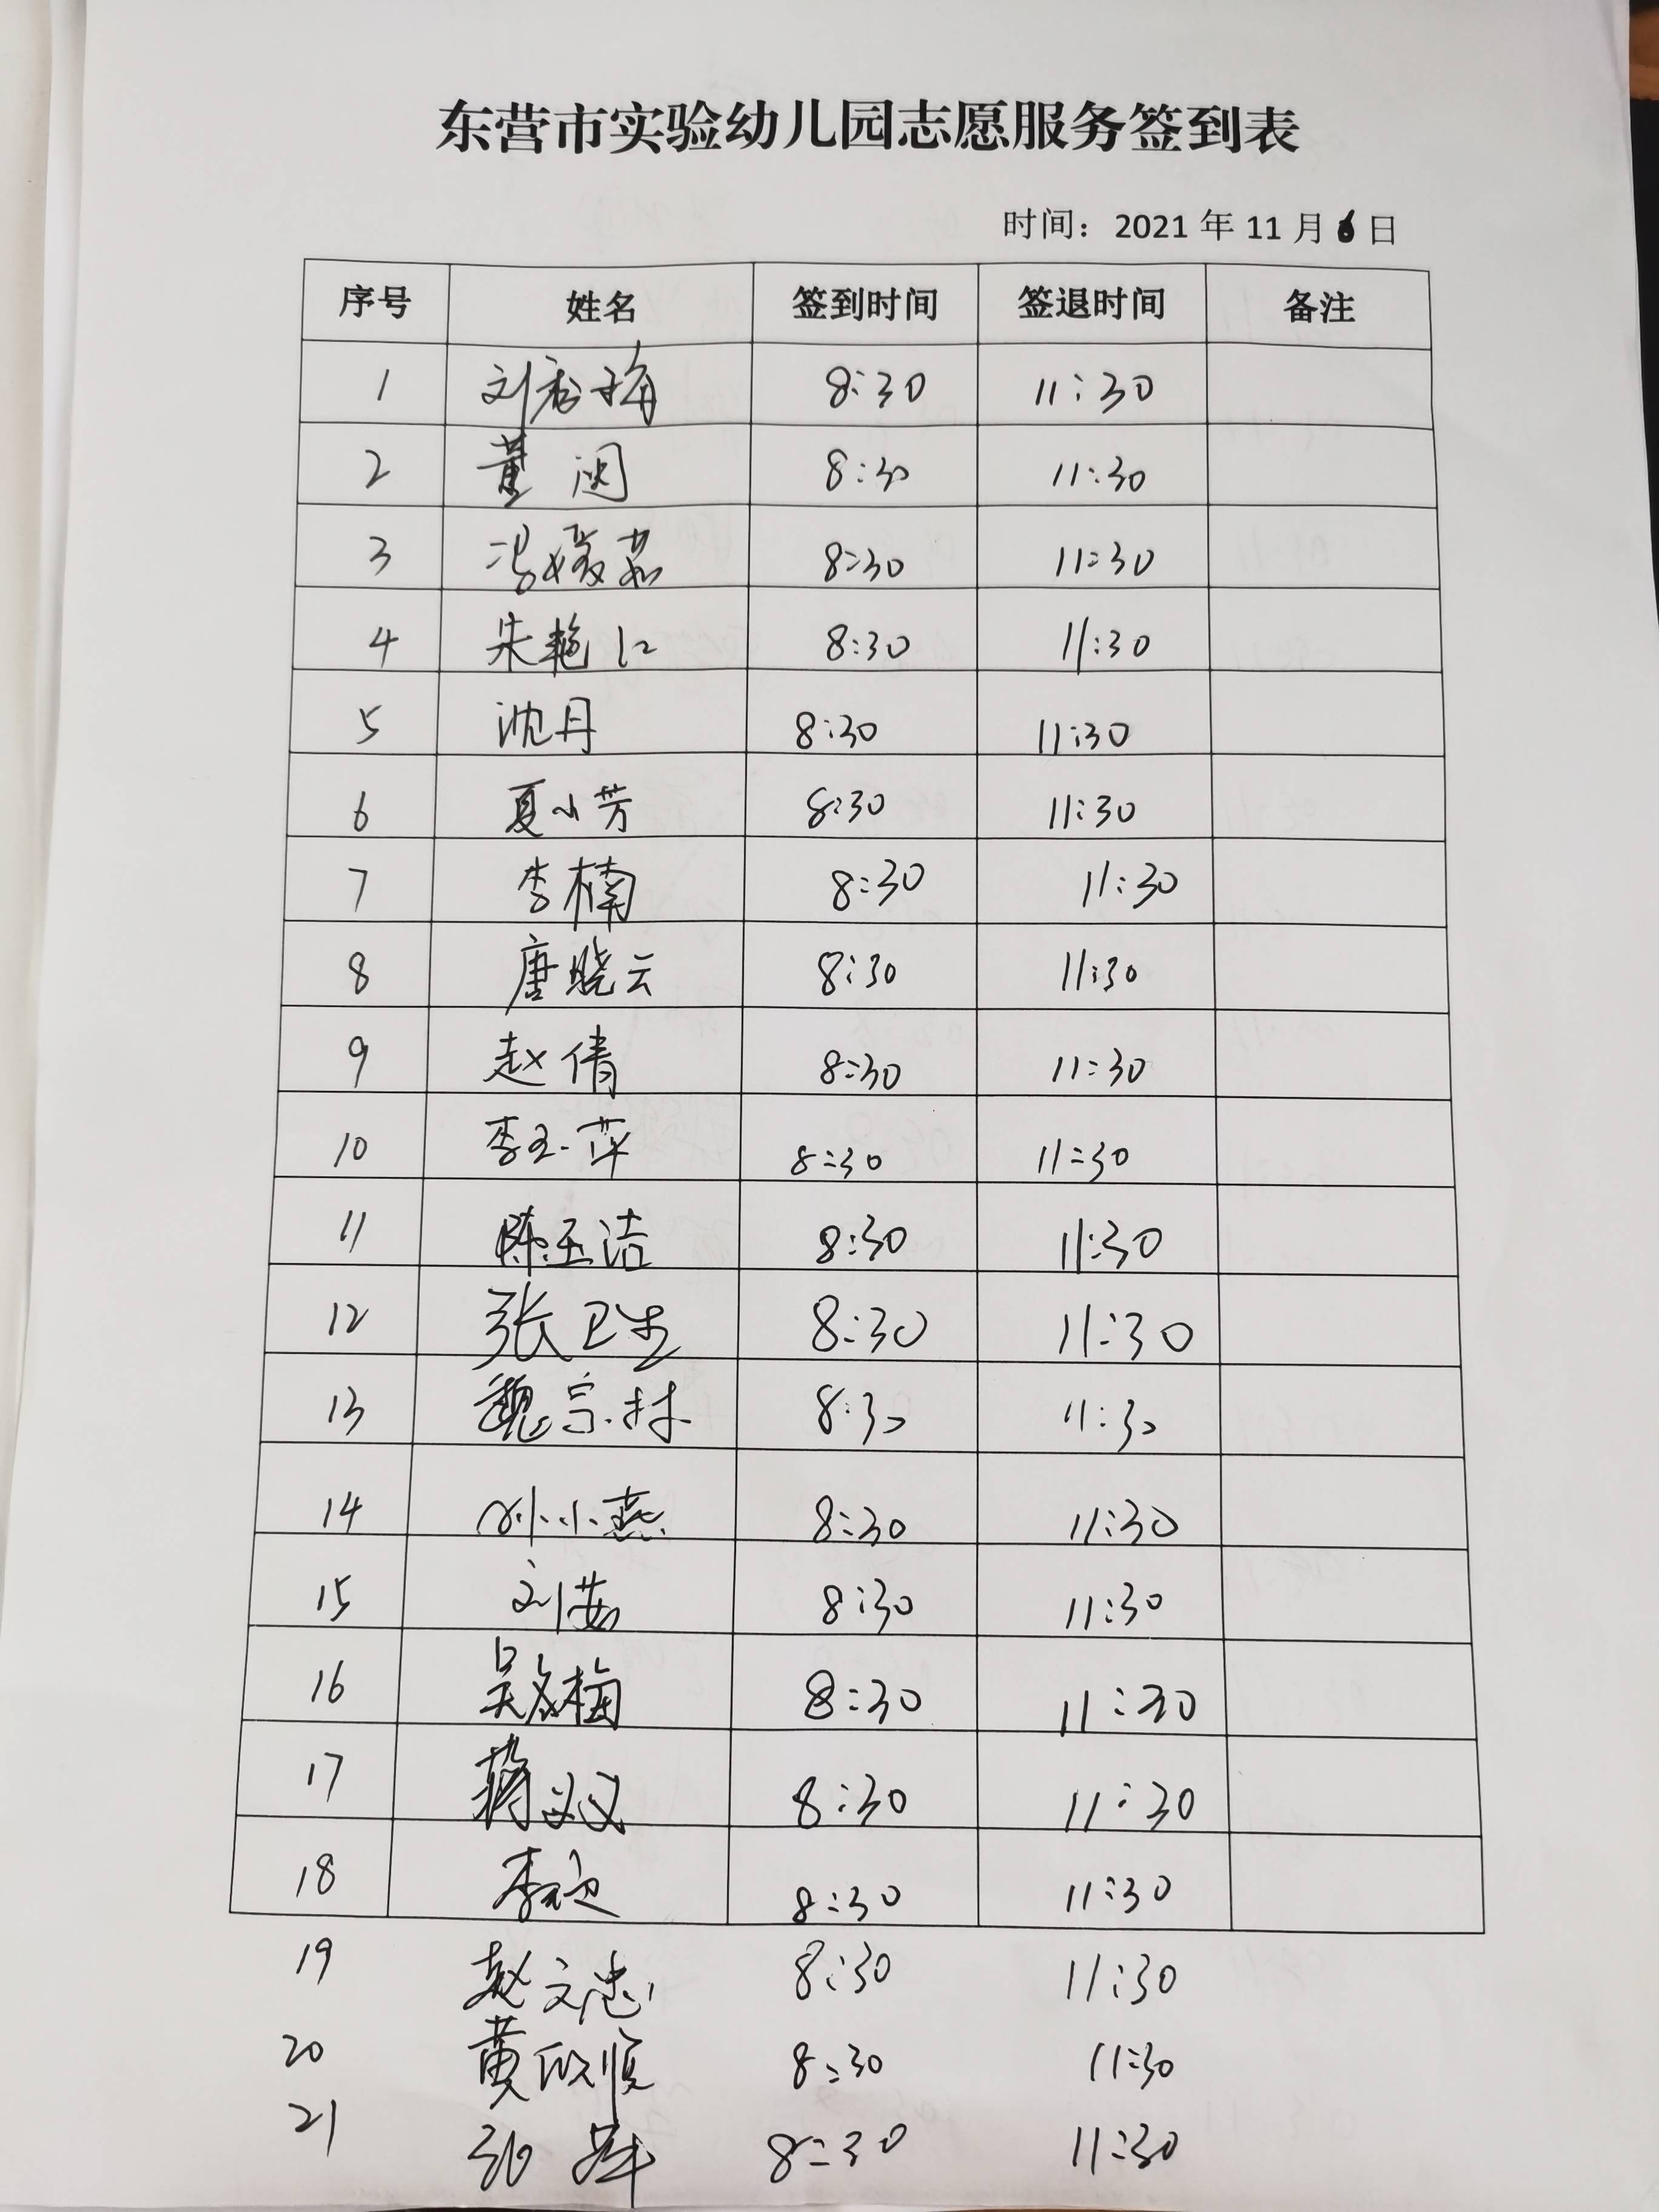 东营市实验幼儿园志愿服务签到表
时间：2021年11月6日
序号 姓名 签到时间 签退时间 备注
1 刘秀梅 8:30 11:30
2 董闵 8:30 11:30
3 冯媛茹 8:30 11:30
4 朱艳红 8:30 11:30
5 沈丹 8:30 11:30
6 夏小芳 8:30 11:30
7 李楠 8:30 11:30
8 唐晓云 8:30 11:30
9 赵倩 8:30 11:30
10 李玉萍 8:30 11:30
11 陈玉洁 8:30 11:30
12 张卫生 8:30 11:30
13 魏宗林 8:30 11:30
14 孙小燕 8:30 11:30
15 刘茹 8:30 11:30
16 吴梅 8:30 11:30
17 蒋 8:30 11:30
18 李 8:30 11:30
19 赵文忠 8:30 11:30
20 黄欣顺 8:30 11:30
21 8:30 11:30